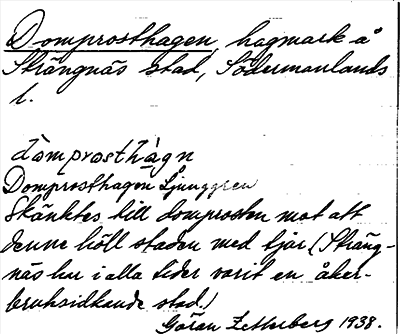 Domprosthagen, hagmark å
Strängnäs stad, Södermanlands
l.
dòmprosthàgn
Domprosthagen Ljunggren
Skänktes till domprosten mot att
denne höll staden med tjur (Sträng-
näs har i alla tider varit en åker-
bruksidkande stad.)
Göran Zetterberg 1938.